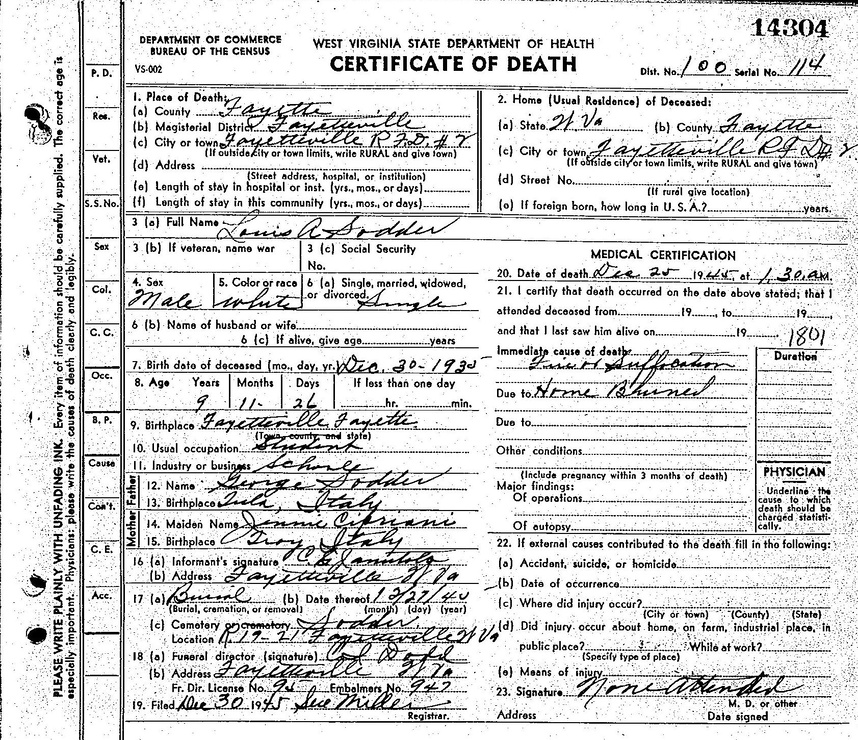 14304
DEPARTMENT OF COMMERCE
BUREAU OF THE CENSUS
VS-002
WEST VIRGINIA STATE DEPARTMENT OF HEALTH
CERTIFICATE OF DEATH
Dist. No. 100 Serial No. 114
PLEASE WRITE PLAINLY WITH UNFADING INK. Every item of information should be carefully supplied. The correct age is
especially important. Physicians: please write the causes of death clearly and legibly.
P. D.
Res.
Vet.
S.S. No.
Sex
Col.
C. C.
Occ.
B. P.
Cause
Con't.
C. E.
Acc.
1. Place of Death:
(a) County Fayette
(b) Magisterial District Fayetteville
(c) City or town Fayetteville R.F.D. #2
(If outside city or town limits, write RURAL and give town)
(d) Address
(Street address, hospital, or institution)
(e) Length of stay in hospital or inst. (yrs., mos., or days)
(f) Length of stay in this community (yrs., mos., or days)
2. Home (Usual Residence) of Deceased:
(a) State W Va (b) County Fayette
(c) City or town Fayetteville R F D # 2
(If outside city or town limits, write RURAL and give town)
(d) Street No.
(If rural give location)
(e) If foreign born, how long in U. S. A.? years.
3 (a) Full Name Louis A Sodder
3 (b) If veteran, name war
3 (c) Social Security
No.
4. Sex
Male
5. Color or race
White
6 (a) Single, married, widowed,
or divorced. Single
6 (b) Name of husband or wife
6 (c) If alive, give age years
7. Birth date of deceased (mo., day, yr.) Dec. 30-1935
8. Age Years Months Days If less than one day
9 11- 26 hr. min.
9. Birthplace Fayetteville Fayette
(Town, county, and state)
10. Usual occupation Student
11. Industry or business
Father
12. Name George Sodder
13. Birthplace Tula, Italy
Mother
14. Maiden Name Jennie Cipriani
15. Birthplace Italy
16 (a) Informant's signature
(b) Address Fayetteville W Va
17 (a) Burial (b) Date thereof 12/27/45
(Burial, cremation, or removal) (month) (day) (year)
(c) Cemetery or crematory Sodder
Location R 19-21 Fayetteville W Va
18 (a) Funeral director (signature) Dodd
(b) Address Fayetteville W Va
Fr. Dir. License No. Embalmers No. 947
19. Filed Dec 30 1945 Sue Miller
Registrar.
MEDICAL CERTIFICATION
20. Date of death Dec 25 1945 at 1.30 am.
21. I certify that death occurred on the date above stated; that I
attended deceased from 19 , to 19 ,
and that I last saw him alive on 19
1801
Immediate cause of death
Fire or Suffocation
Duration
Due to Home Bhurned
Due to
Other conditions
(Include pregnancy within 3 months of death)
Major findings:
Of operations
Of autopsy
PHYSICIAN
Underline the
cause to which
death should be
charged statisti-
cally.
22. If external causes contributed to the death fill in the following:
(a) Accident, suicide, or homicide
(b) Date of occurrence
(c) Where did injury occur?
(City or town) (County) (State)
(d) Did injury occur about home, on farm, industrial place, in
public place? While at work?
(Specify type of place)
(e) Means of injury
23. Signature None Attended
M. D. or other
Address Date signed